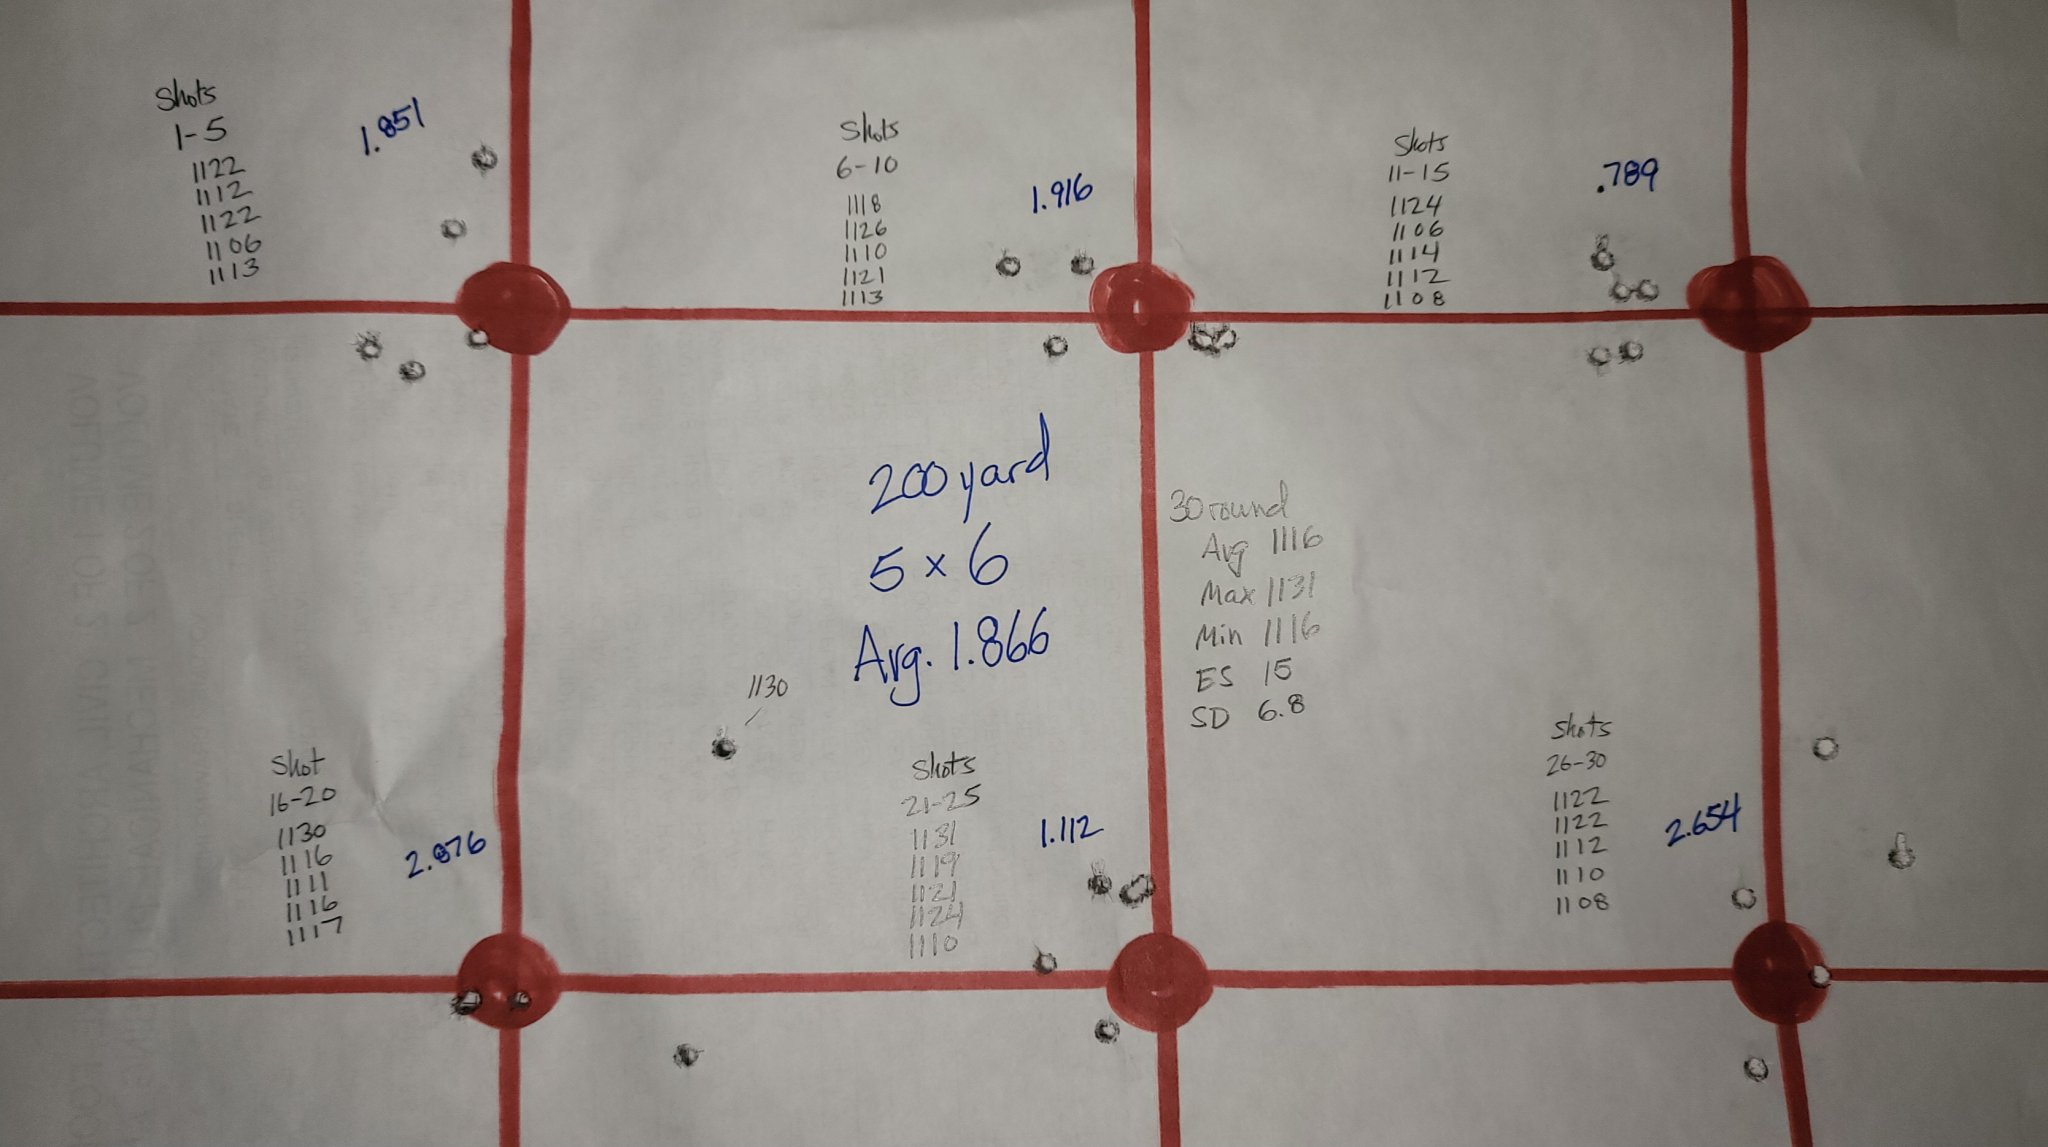 Shots
1-5
1122
1112
1122
1106
1113
1.851
Shots
6-10
1118
1126
1110
1121
1113
1.916
Shots
11-15
1124
1106
1114
1112
1108
.789
200 yard
5 x 6
Avg. 1.866
30 round
Avg 1116
Max 1131
Min 1116
ES 15
SD 6.8
1130
Shot
16-20
1130
1116
1111
1116
1117
2.876
Shots
21-25
1131
1119
1121
1124
1110
1.112
Shots
26-30
1122
1122
1112
1110
1108
2.654